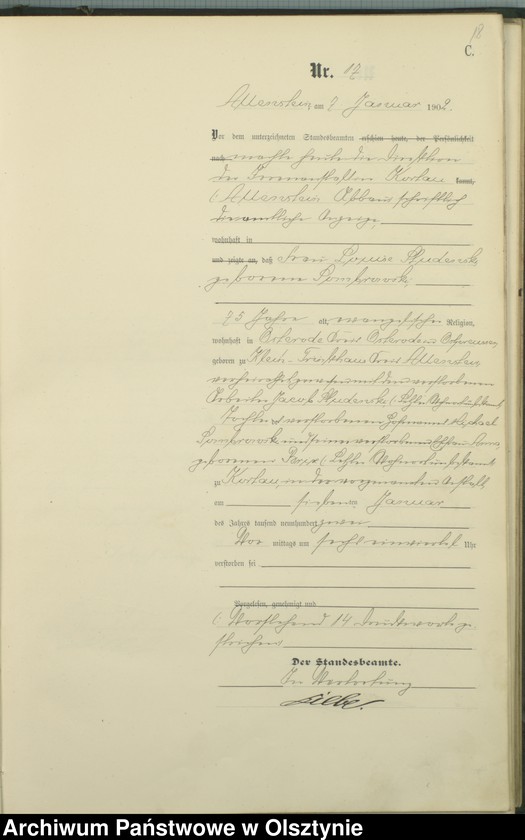 18
C.
Nr. 17
Allenstein am 9 Januar 1902.
Vor dem unterzeichneten Standesbeamten erschien heute, der Persönlichkeit
nach machte heute die Direktion
der Irrenanstalten Kortau kannt,
Allenstein schriftlich
die amtliche Anzeige,
wohnhaft in
und zeigte an, daß Frau Louise
geborene Dombrowski
75 Jahre alt, evangelischer Religion,
wohnhaft in Osterode Kreis Osterode Ostpreußen,
geboren zu Klein Kreis Allenstein
verheirathet gewesen mit dem verstorbenen
Arbeiter Jacob
Tochter des verstorbenen Michael
Dombrowski und seiner verstorbenen Ehefrau
geborenen
zu Kortau, in der vorgenannten Anstalt,
am sieben ten Januar
des Jahres tausend neunhundert zwei
Vor mittags um sechs einviertel Uhr
verstorben sei
Vorgelesen, genehmigt und
Vorstehend 14 Druckworte ge-
strichen
Der Standesbeamte.
In Vertretung
Archiwum Państwowe w Olsztynie